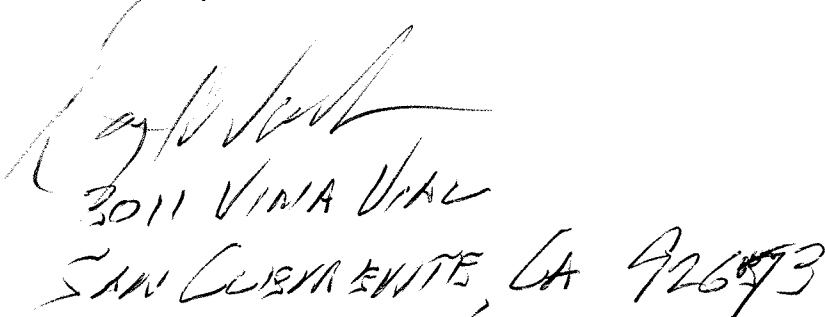 3011 VINA VIAL
SAN CLEMENTE, CA 92673